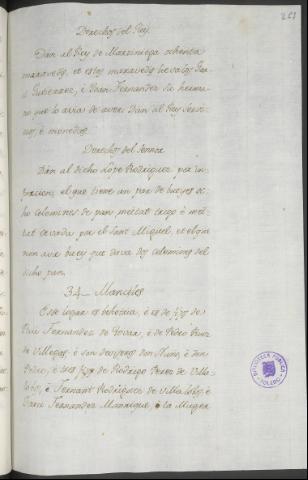 251
Derechos del Rey.
Dan al Rey de Marzniega ochenta
maravedis, et estos maravedis
Gutierrez, è Juan Fernandez su herma-
no que lo avia de aver. Dan al Rey servi-
cios, è monedas.
Derechos del Sennor
Dan al dicho Lope Rodriguez por in-
furcion, el que tiene un par de bueyes o-
cho celemines de pan, meitat trigo è mei-
tat cevada por el Sant Miguel, et el que
non avie buey que dava dos celemines del
dicho pan.
34 Manciles
Este logar es behetria, è es de fijos de
Ruy Fernandez de Tovar, è de Pedro Ruiz
de Villegas, è son devyseros don Nunno, è don
Pedro, è los fijos de Rodrigo Perez de Villa-
lobos, è Fernant Rodriguez de Villalobos, è
Garci Fernandez Manrique, è la Muger
BIBLIOTECA PUBLICA
TOLEDO